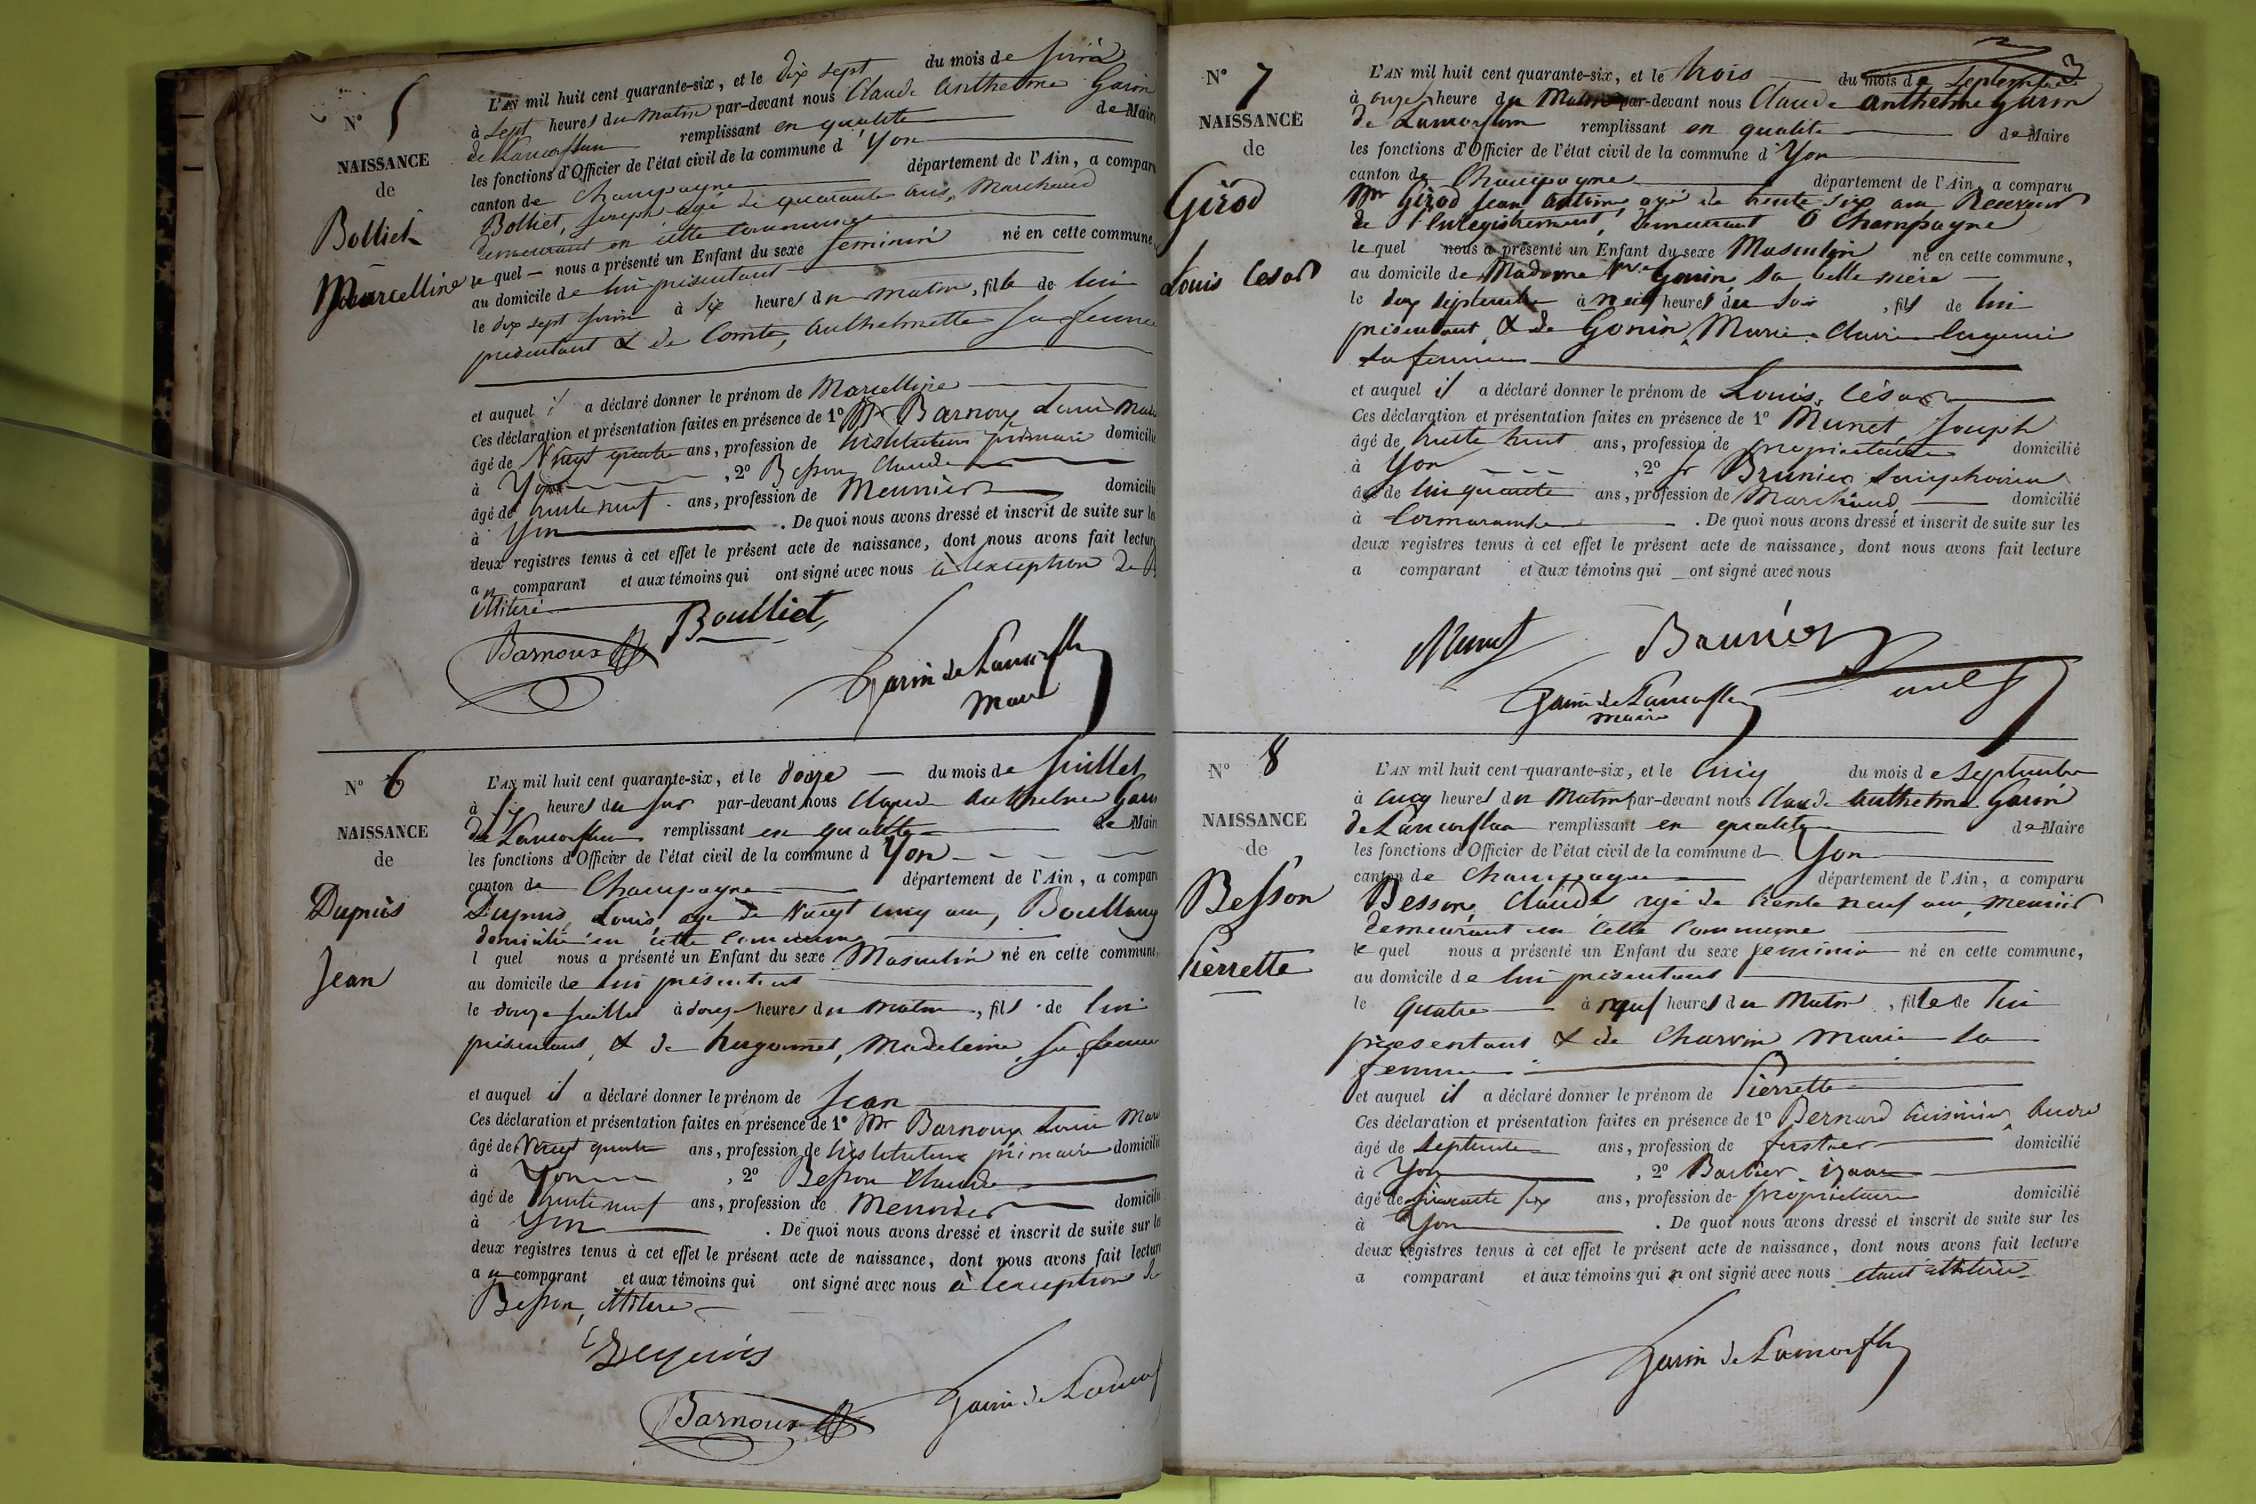 N° 5
NAISSANCE
de
Bolliet
Marcelline
L'AN mil huit cent quarante-six, et le dix sept du mois de juin
à sept heures du matin par-devant nous Claude Anthelme Garin
de Lamorflan remplissant en qualité de Maire
les fonctions d'Officier de l'état civil de la commune d'Yon
canton de Champagne département de l'Ain, a comparu
Bolliet, Joseph agé de quarante ans, Marchand
demeurant en cette commune
le quel nous a présenté un Enfant du sexe feminin né en cette commune,
au domicile de lui présentant
le dix sept juin à six heures du matin, fille de lui
présentant & de Comte, Anthelmette sa femme
et auquel il a déclaré donner le prénom de Marcelline
Ces déclaration et présentation faites en présence de 1° Mr Barnoux Louis Marie
âgé de Vingt quatre ans, profession de Instituteur primaire domicilié
à Yon , 2° Besson Claude
âgé de trente neuf ans, profession de Meunier domicilié
à Yon . De quoi nous avons dressé et inscrit de suite sur les
deux registres tenus à cet effet le présent acte de naissance, dont nous avons fait lecture
au comparant et aux témoins qui ont signé avec nous à l'exception de B
illitéré
Barnoux Boulliet
Garin de Lamorflan
Maire
N° 6
NAISSANCE
de
Dupuis
Jean
L'AN mil huit cent quarante-six, et le douze du mois de juillet
à six heures du soir par-devant nous Claude Anthelme Garin
de Lamorflan remplissant en qualité de Maire
les fonctions d'Officier de l'état civil de la commune d Yon
canton de Champagne département de l'Ain, a comparu
Dupuis, Louis, agé de vingt cinq ans, Boullang
domicilié en cette commune
l quel nous a présenté un Enfant du sexe Masculin né en cette commune,
au domicile de lui présentant
le douze juillet à douze heures du matin, fils de lui
présentant, & de hugonnet, Madeleine, sa femme
et auquel il a déclaré donner le prénom de Jean
Ces déclaration et présentation faites en présence de 1° Mr Barnoux Louis Marie
âgé de Vingt quatre ans, profession de Instituteur primaire domicilié
à Yon , 2° Besson Claude
âgé de trente neuf ans, profession de Meunier domicilié
à Yon . De quoi nous avons dressé et inscrit de suite sur les
deux registres tenus à cet effet le présent acte de naissance, dont nous avons fait lecture
au comparant et aux témoins qui ont signé avec nous à l'exception de
Besson, illitéré
Dupuis
Barnoux Garin de Lamorf
3
N° 7
NAISSANCE
de
Girod
Louis Cesar
L'AN mil huit cent quarante-six, et le trois du mois de Septembre
à onze heure du Matin par-devant nous Claude Anthelme Garin
de Lamorflan remplissant en qualité de Maire
les fonctions d'Officier de l'état civil de la commune d'Yon
canton de Champagne département de l'Ain, a comparu
Mr Girod Jean Antoine agé de trente six ans Receveur
de l'Enregistrement, demeurant à Champagne
le quel nous a présenté un Enfant du sexe Masculin né en cette commune,
au domicile de Madame Ve Gonin, sa belle mère
le deux septembre à neuf heures du soir , fils de lui
présentant, & de Gonin, Marie Claire Eugenie
sa femme
et auquel il a déclaré donner le prénom de Louis, César
Ces déclaration et présentation faites en présence de 1° Munet Joseph
âgé de trente huit ans, profession de propriétaire domicilié
à Yon , 2° Sr Brunier Simphorien
âgé de cinquante ans, profession de Marchand domicilié
à Cormaranche . De quoi nous avons dressé et inscrit de suite sur les
deux registres tenus à cet effet le présent acte de naissance, dont nous avons fait lecture
a comparant et aux témoins qui ont signé avec nous
Munet Brunier
Garin de Lamorflan
maire
N° 8
NAISSANCE
de
Besson
Pierrette
L'AN mil huit cent quarante-six, et le cinq du mois de Septembre
à cinq heures du Matin par-devant nous Claude Anthelme Garin
de Lamorflan remplissant en qualité de Maire
les fonctions d'Officier de l'état civil de la commune d Yon
canton de Champagne département de l'Ain, a comparu
Besson, Claude agé de trente neuf ans, meunier
demeurant en cette commune
le quel nous a présenté un Enfant du sexe feminin né en cette commune,
au domicile de lui présentant
le quatre à neuf heures du Matin , fille de lui
présentant & de Charvin Marie sa
femme
et auquel il a déclaré donner le prénom de Pierrette
Ces déclaration et présentation faites en présence de 1° Bernard André
âgé de septante ans, profession de domicilié
à Yon , 2° Barbier
âgé de soixante six ans, profession de propriétaire domicilié
à Yon . De quoi nous avons dressé et inscrit de suite sur les
deux registres tenus à cet effet le présent acte de naissance, dont nous avons fait lecture
a comparant et aux témoins qui n ont signé avec nous étant illitérés
Garin de Lamorfln